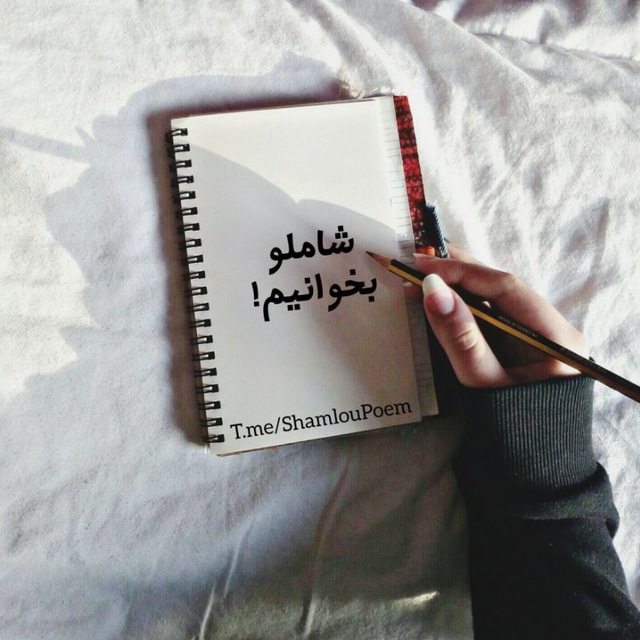 شاملو
بخوانیم!
T.me/ShamlouPoem